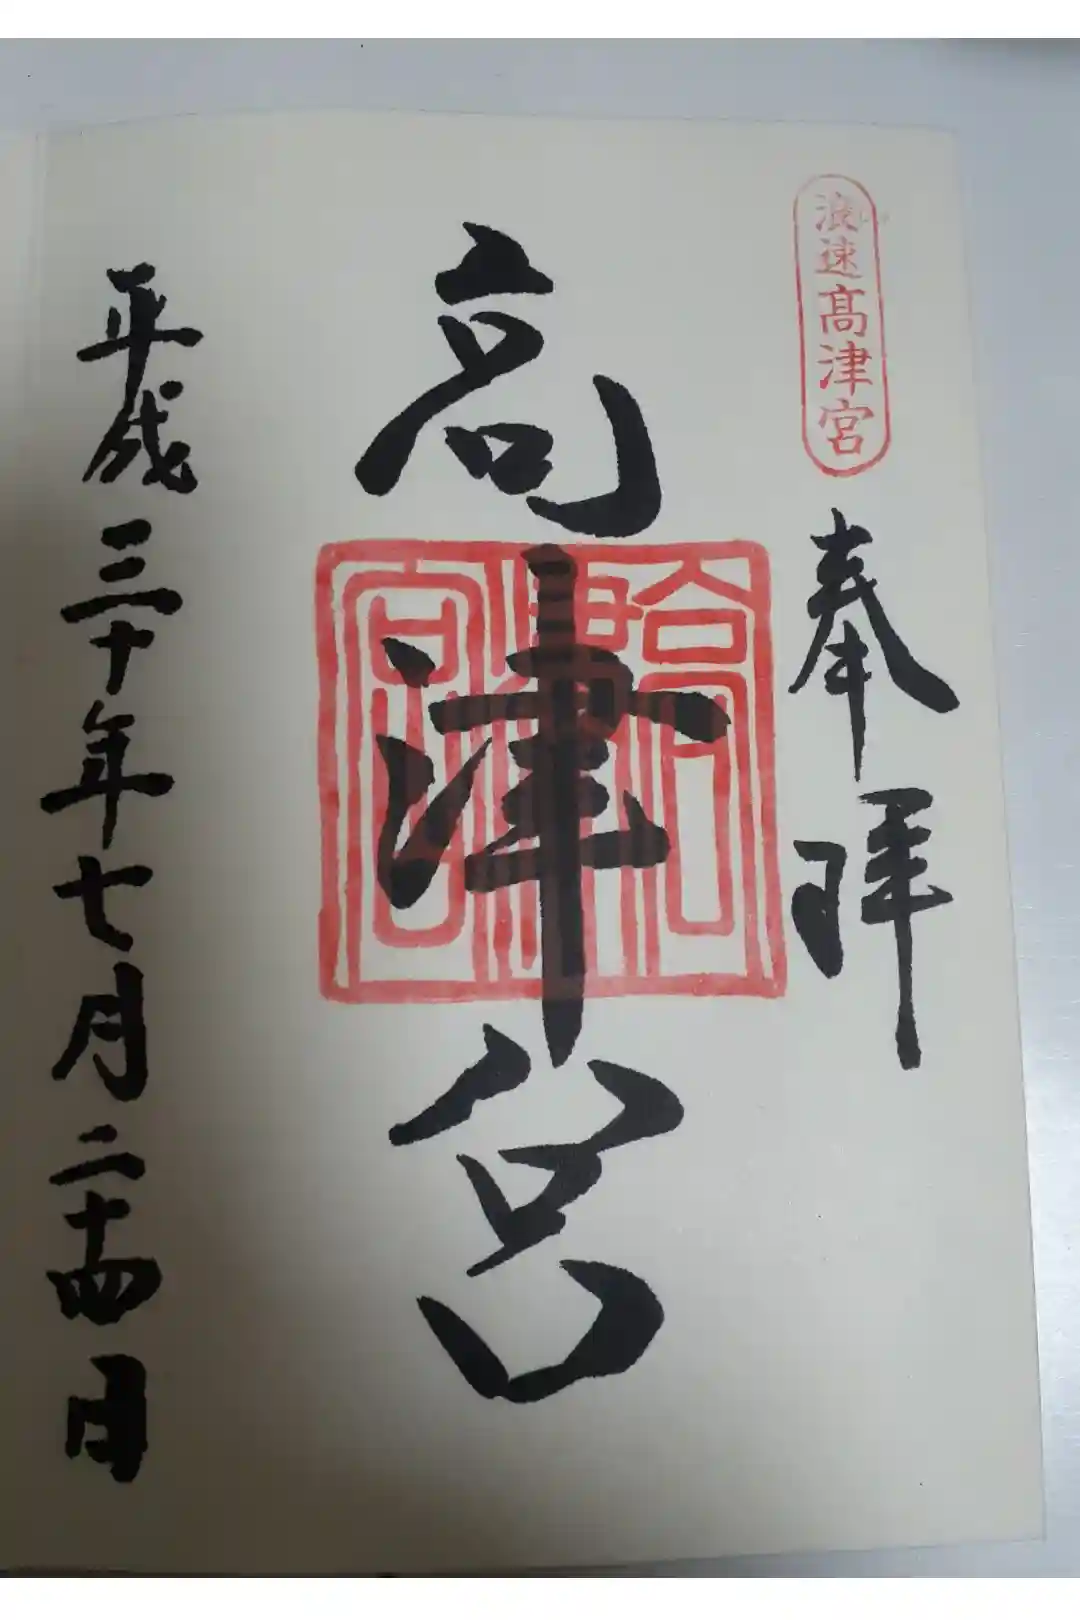 浪速髙津宮
奉拝
高津宮
髙津宮
平成三十年七月二十四日